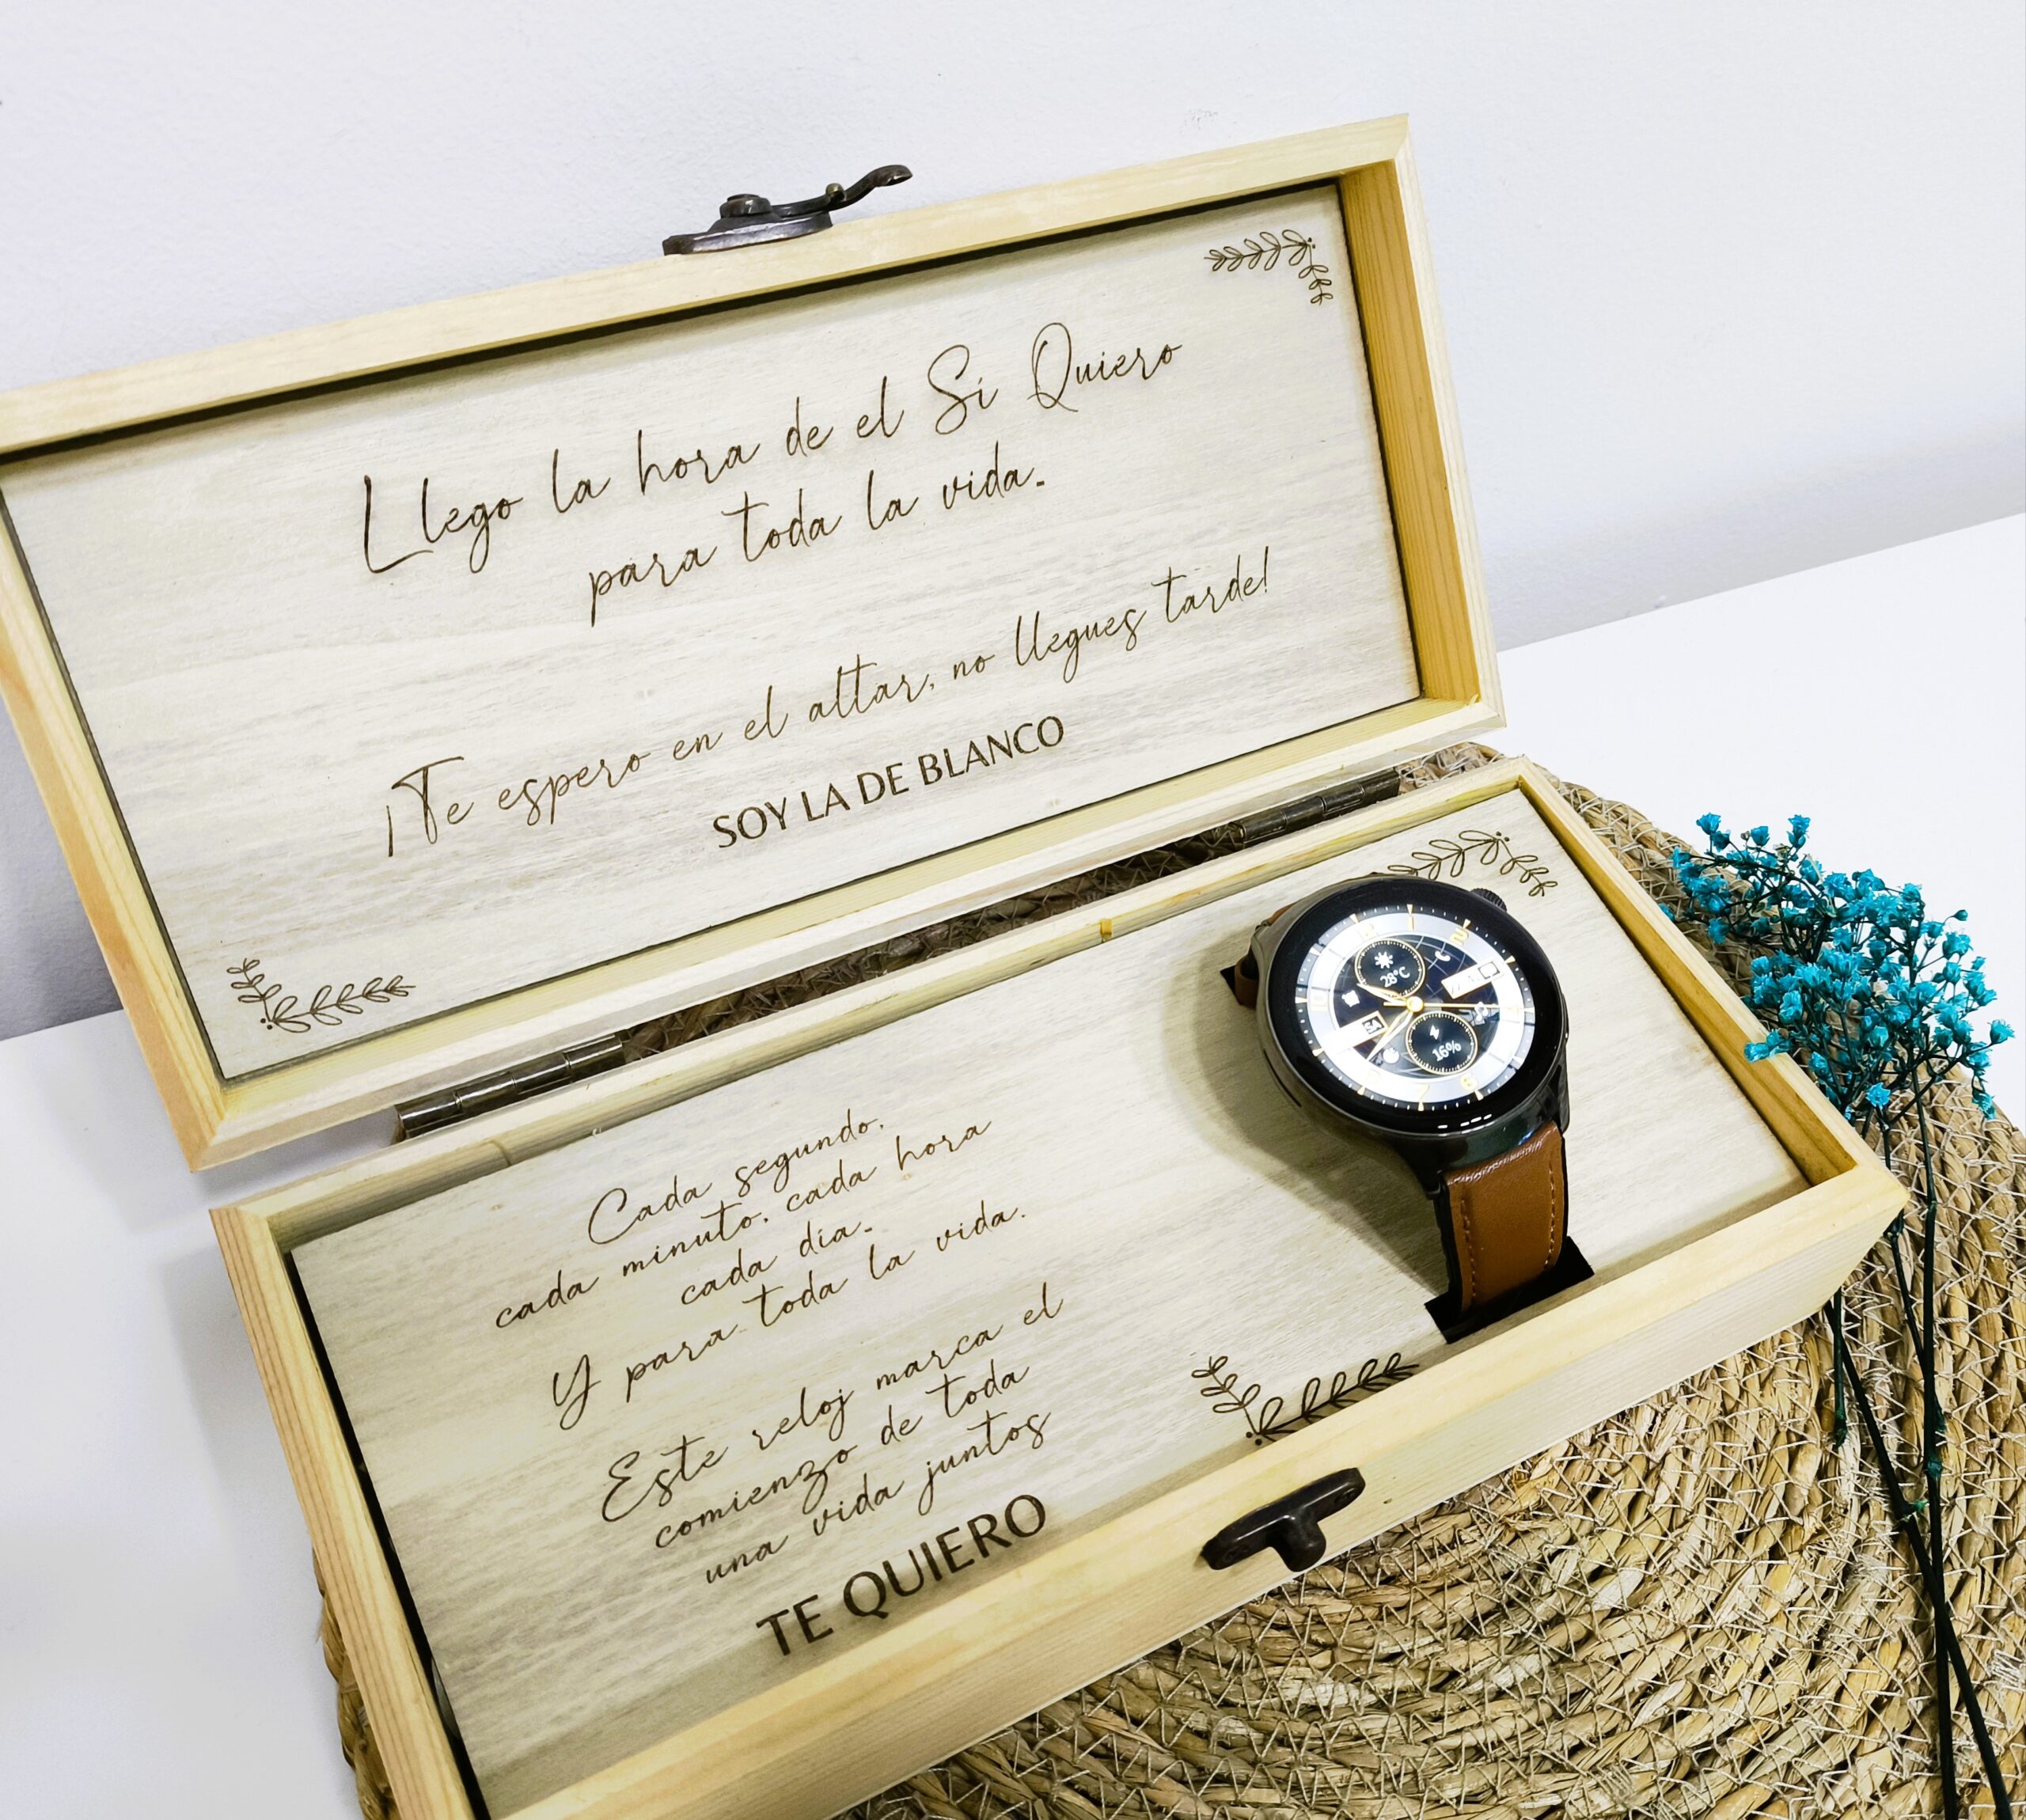 Llego la hora de el Si Quiero
para toda la vida.
¡Te espero en el altar, no llegues tarde!
SOY LA DE BLANCO
Cada segundo,
cada minuto, cada hora
cada dia.
Y para toda la vida.
Este reloj marca el
comienzo de toda
una vida juntos
TE QUIERO
28°C
54
16%